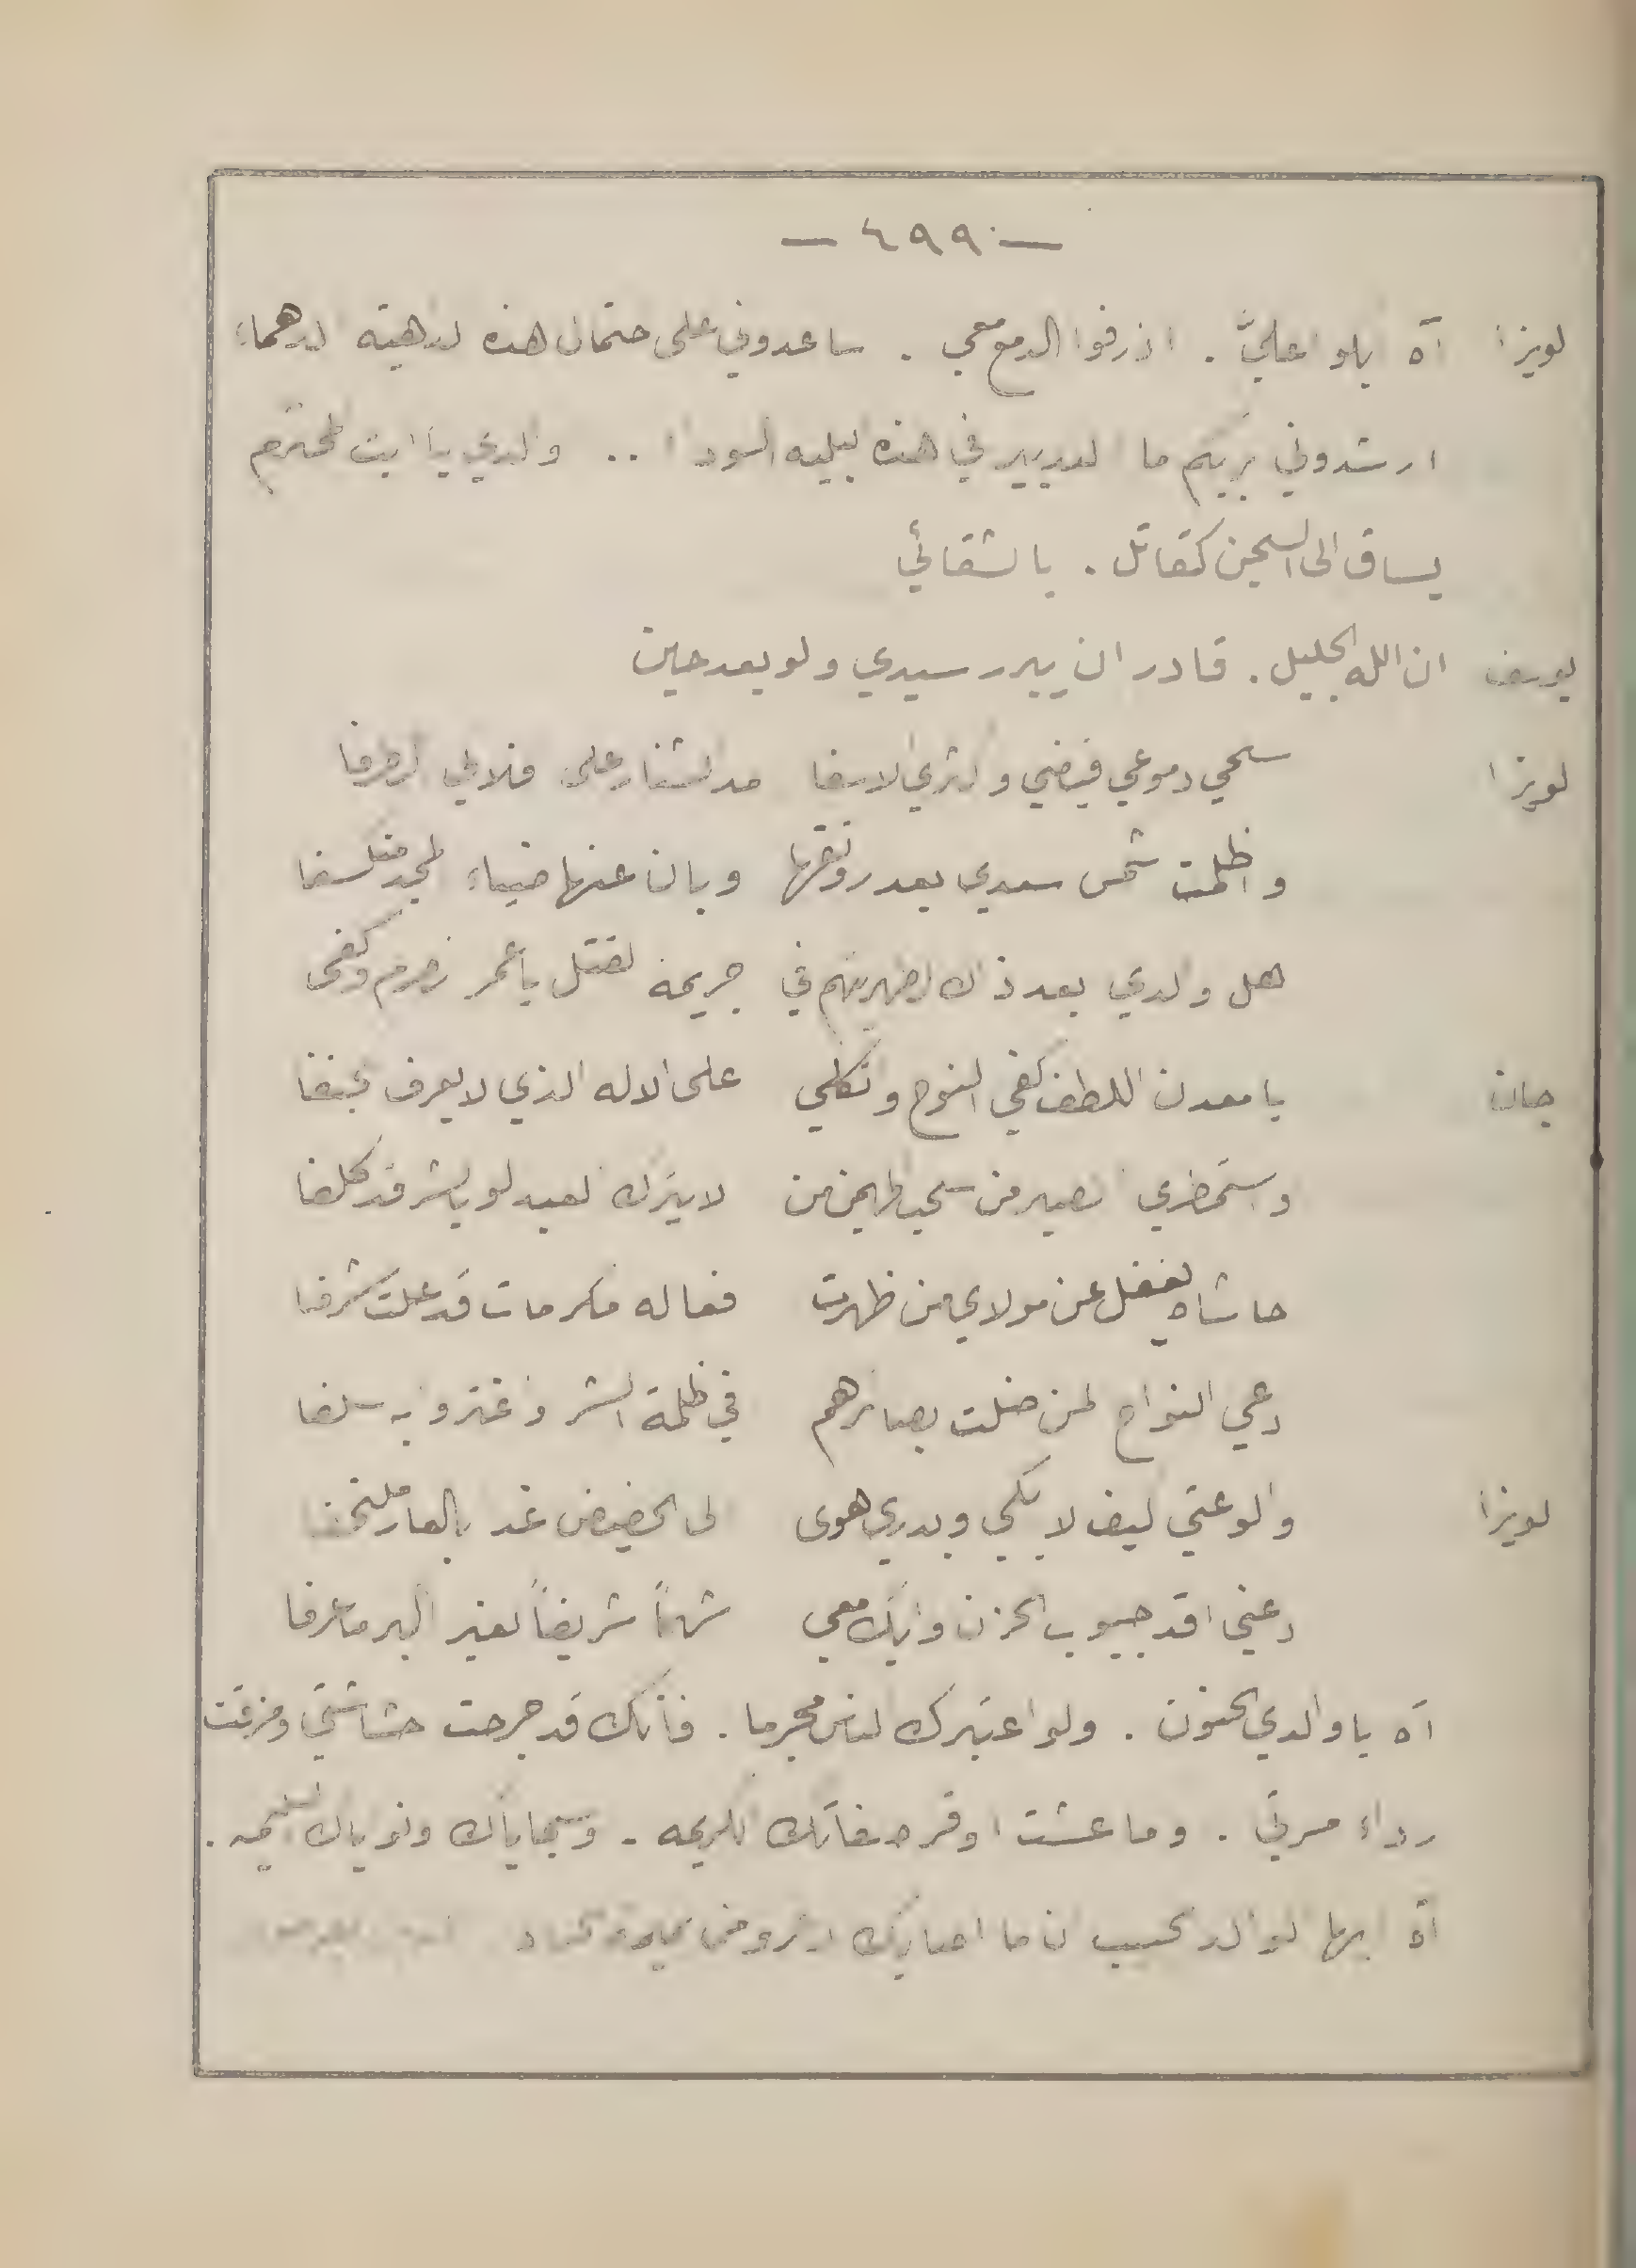 — ٤٩٩ —
لويزا آه بلو اعليَّ . اذرفوا الدمع معي . ساعدوني على حتمال هذه لداهية لدهماء
ارشدوني بربكم ما لتدبير في هذه لبليه السودا .. والدي يا ابت لمحترم
يساق الى السجن كقاتل . يا لشقائي
يوسف ان الله الجليل . قادر ان يبرر سيدي ولو بعد حين
لويزا سحي دموعي فيضي واثري لاسفا مد لشنار على
واظلمت شمس سعدي بعد رونقها وبان عنها ضياء لمجد منكسفا
هل والدي بعد ذاك في جريمة لقتل يا عمر وكفى
جان يا معدن اللطف كفي النوح واتكلي على الاله الذي لا يعرف
واستمطري لصبر من سحب لمهيمن من لا يترك لعبد لو بالشر قد كلفا
حاشاه يغفل عن مولاي من ظهرت فعاله مكرمات قد علت شرفا
دعي النواح لمن ضلت بصائرهم في ظلمة الشر وغتروا به سلفا
لويزا والوعتي ليف لا بكي وبدري هوى لى الحضيض غد بالعار ملتحفا
دعني اقد جيوب الحزن وابك معي شهماً شريفاً لغير البر ما عرفا
آه يا والدي الحنون . ولو اعتبرك لناس مجرما . فأنك قد جرحت حشاشتي ومزقت
رداء مسرتي . وما عشت اوقر صفاتك لكريمه . وسجاياك ونواياك لسليمه .
آه ايها لوالد لحبيب انا ما اصابك